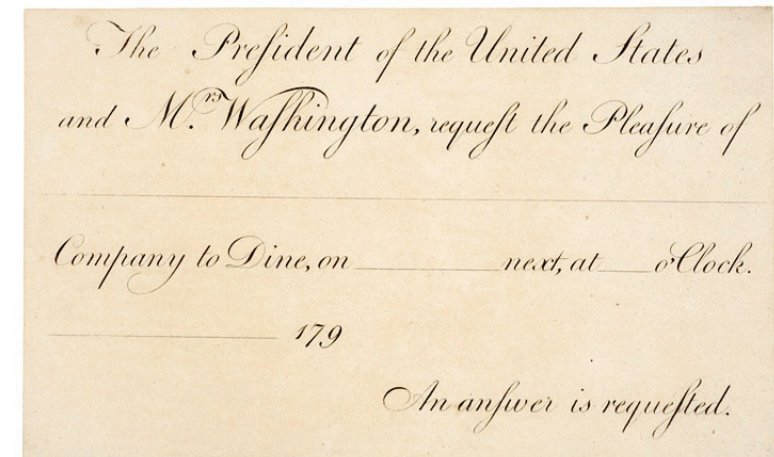 The Preſident of the United States
and Mrs. Waſhington, requeſt the Pleaſure of
Company to Dine, on ______ next, at ___ o'Clock.
______ 179
An anſwer is requeſted.